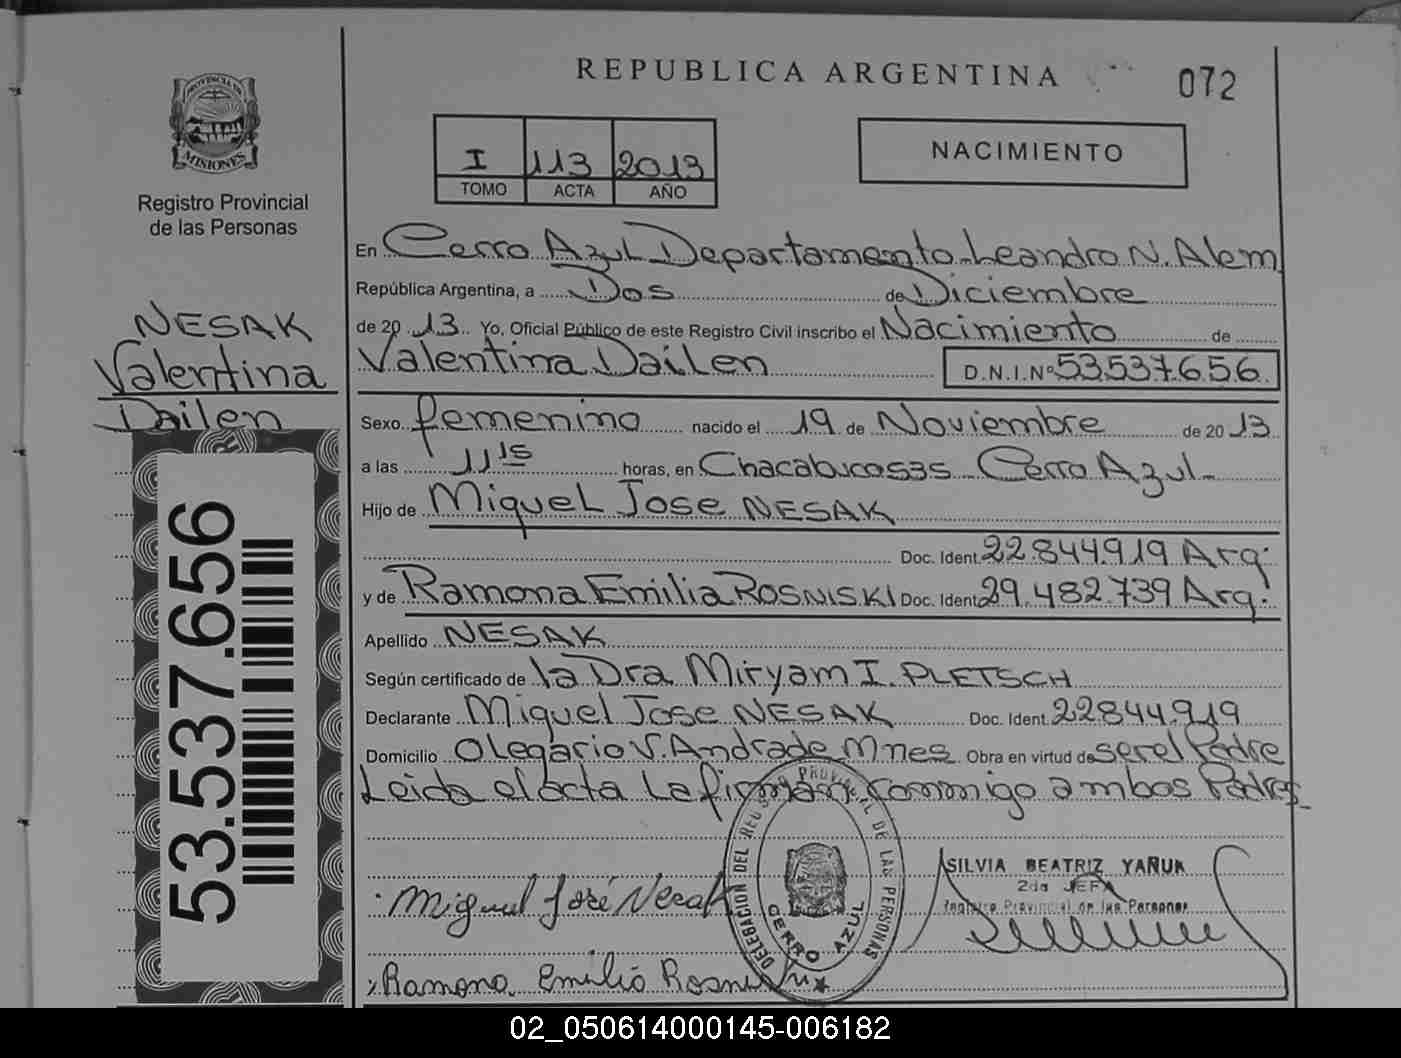 REPUBLICA ARGENTINA
072
PROVINCIA DE
MISIONES
Registro Provincial
de las Personas
I 113 2013
TOMO ACTA AÑO
NACIMIENTO
En Cerro Azul Departamento Leandro N. Alem
República Argentina, a Dos de Diciembre
de 2013 Yo, Oficial Público de este Registro Civil inscribo el Nacimiento de
Valentina Dailen D.N.I.Nº 53537656
NESAK
Valentina
Dailen
53.537.656
Sexo femenino nacido el 19 de Noviembre de 2013
a las 11 15 horas, en Chacabuco 535 Cerro Azul
Hijo de Miguel Jose NESAK
Doc. Ident. 22.844.919 Arg.
y de Ramona Emilia ROSNISKI Doc. Ident. 29.482.739 Arg.
Apellido NESAK
Según certificado de la Dra Miryam I. PLETSCH
Declarante Miguel Jose NESAK Doc. Ident. 22844.919
Domicilio Olegario V. Andrade Mnes Obra en virtud de ser el Padre
Leida el acta La firman conmigo ambos Padres
DELEGACION DEL REGISTRO PROVINCIAL DE LAS PERSONAS
CERRO AZUL
SILVIA BEATRIZ YAÑUK
2da JEFA
Registro Provincial de las Personas
Miguel José Nesak
Ramona Emilia
02_050614000145-006182